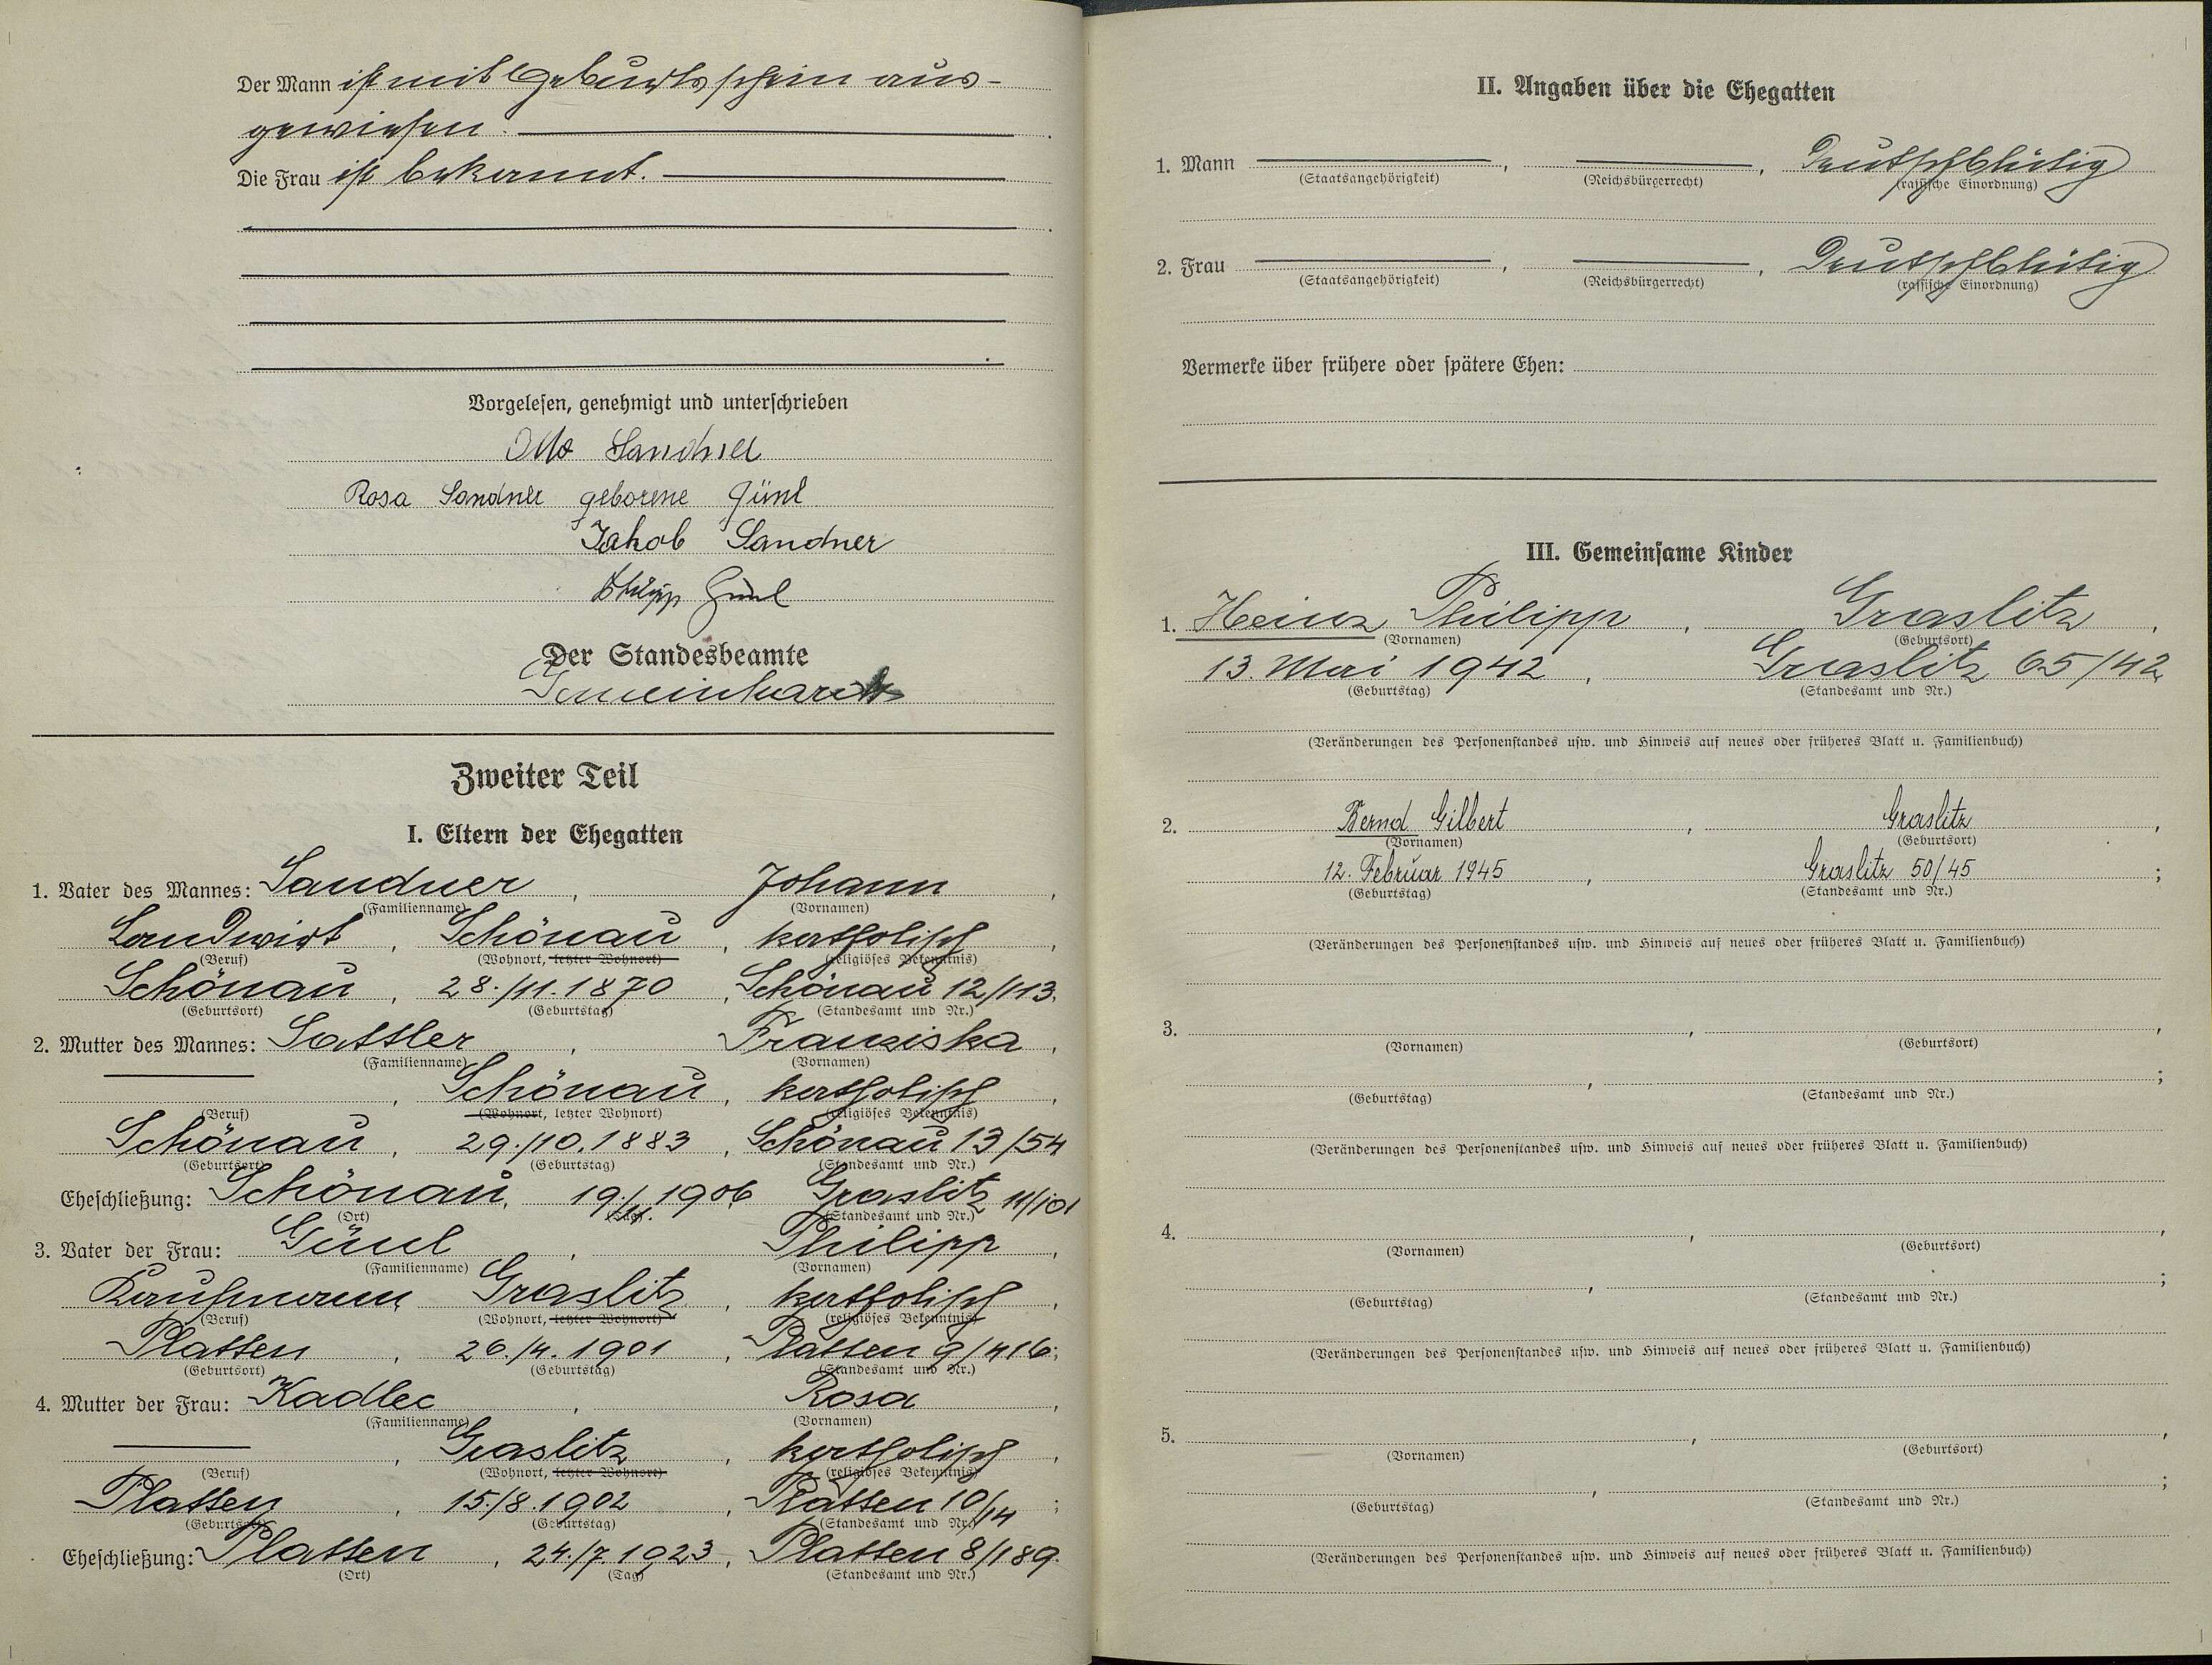 Der Mann ist mit Geburtsschein aus-
gewiesen.
Die Frau ist bekannt.
Vorgelesen, genehmigt und unterschrieben
Otto Sandner
Rosa Sandner geborene Günl
Jakob Sandner
Philipp Günl
Der Standesbeamte
Zweiter Teil
I. Eltern der Ehegatten
1. Vater des Mannes: Sandner, Johann,
(Familienname) (Vornamen)
Landwirt, Schönau, katholisch,
(Beruf) (Wohnort, letzter Wohnort) (religiöses Bekenntnis)
Schönau, 28./11.1870, Schönau 12/113.
(Geburtsort) (Geburtstag) (Standesamt und Nr.)
2. Mutter des Mannes: Sattler, Franziska,
(Familienname) (Vornamen)
Schönau, katholisch,
(Beruf) (Wohnort, letzter Wohnort) (religiöses Bekenntnis)
Schönau, 29./10.1883, Schönau 13/54
(Geburtsort) (Geburtstag) (Standesamt und Nr.)
Eheschließung: Schönau, 19./11. 1906 Graslitz 11/101
(Ort) (Tag) (Standesamt und Nr.)
3. Vater der Frau: Günl, Philipp,
(Familienname) (Vornamen)
Kaufmann Graslitz, katholisch,
(Beruf) (Wohnort, letzter Wohnort) (religiöses Bekenntnis)
Platten, 26./4.1901, Platten 9/416;
(Geburtsort) (Geburtstag) (Standesamt und Nr.)
4. Mutter der Frau: Kadlec, Rosa,
(Familienname) (Vornamen)
Graslitz, katholisch,
(Beruf) (Wohnort, letzter Wohnort) (religiöses Bekenntnis)
Platten, 15./8.1902, Platten 10/14;
(Geburtsort) (Geburtstag) (Standesamt und Nr.)
Eheschließung: Platten, 24./7.1923, Platten 8/189.
(Ort) (Tag) (Standesamt und Nr.)
II. Angaben über die Ehegatten
1. Mann , , Deutschblütig
(Staatsangehörigkeit) (Reichsbürgerrecht) (rassische Einordnung)
2. Frau , , Deutschblütig
(Staatsangehörigkeit) (Reichsbürgerrecht) (rassische Einordnung)
Vermerke über frühere oder spätere Ehen:
III. Gemeinsame Kinder
1. Heinz Philipp, Graslitz,
(Vornamen) (Geburtsort)
13. Mai 1942, Graslitz 65/42
(Geburtstag) (Standesamt und Nr.)
(Veränderungen des Personenstandes usw. und Hinweis auf neues oder früheres Blatt u. Familienbuch)
2. Bernd Gilbert, Graslitz,
(Vornamen) (Geburtsort)
12. Februar 1945, Graslitz 50/45;
(Geburtstag) (Standesamt und Nr.)
(Veränderungen des Personenstandes usw. und Hinweis auf neues oder früheres Blatt u. Familienbuch)
3. , ,
(Vornamen) (Geburtsort)
, ;
(Geburtstag) (Standesamt und Nr.)
(Veränderungen des Personenstandes usw. und Hinweis auf neues oder früheres Blatt u. Familienbuch)
4. , ,
(Vornamen) (Geburtsort)
, ;
(Geburtstag) (Standesamt und Nr.)
(Veränderungen des Personenstandes usw. und Hinweis auf neues oder früheres Blatt u. Familienbuch)
5. , ,
(Vornamen) (Geburtsort)
, ;
(Geburtstag) (Standesamt und Nr.)
(Veränderungen des Personenstandes usw. und Hinweis auf neues oder früheres Blatt u. Familienbuch)